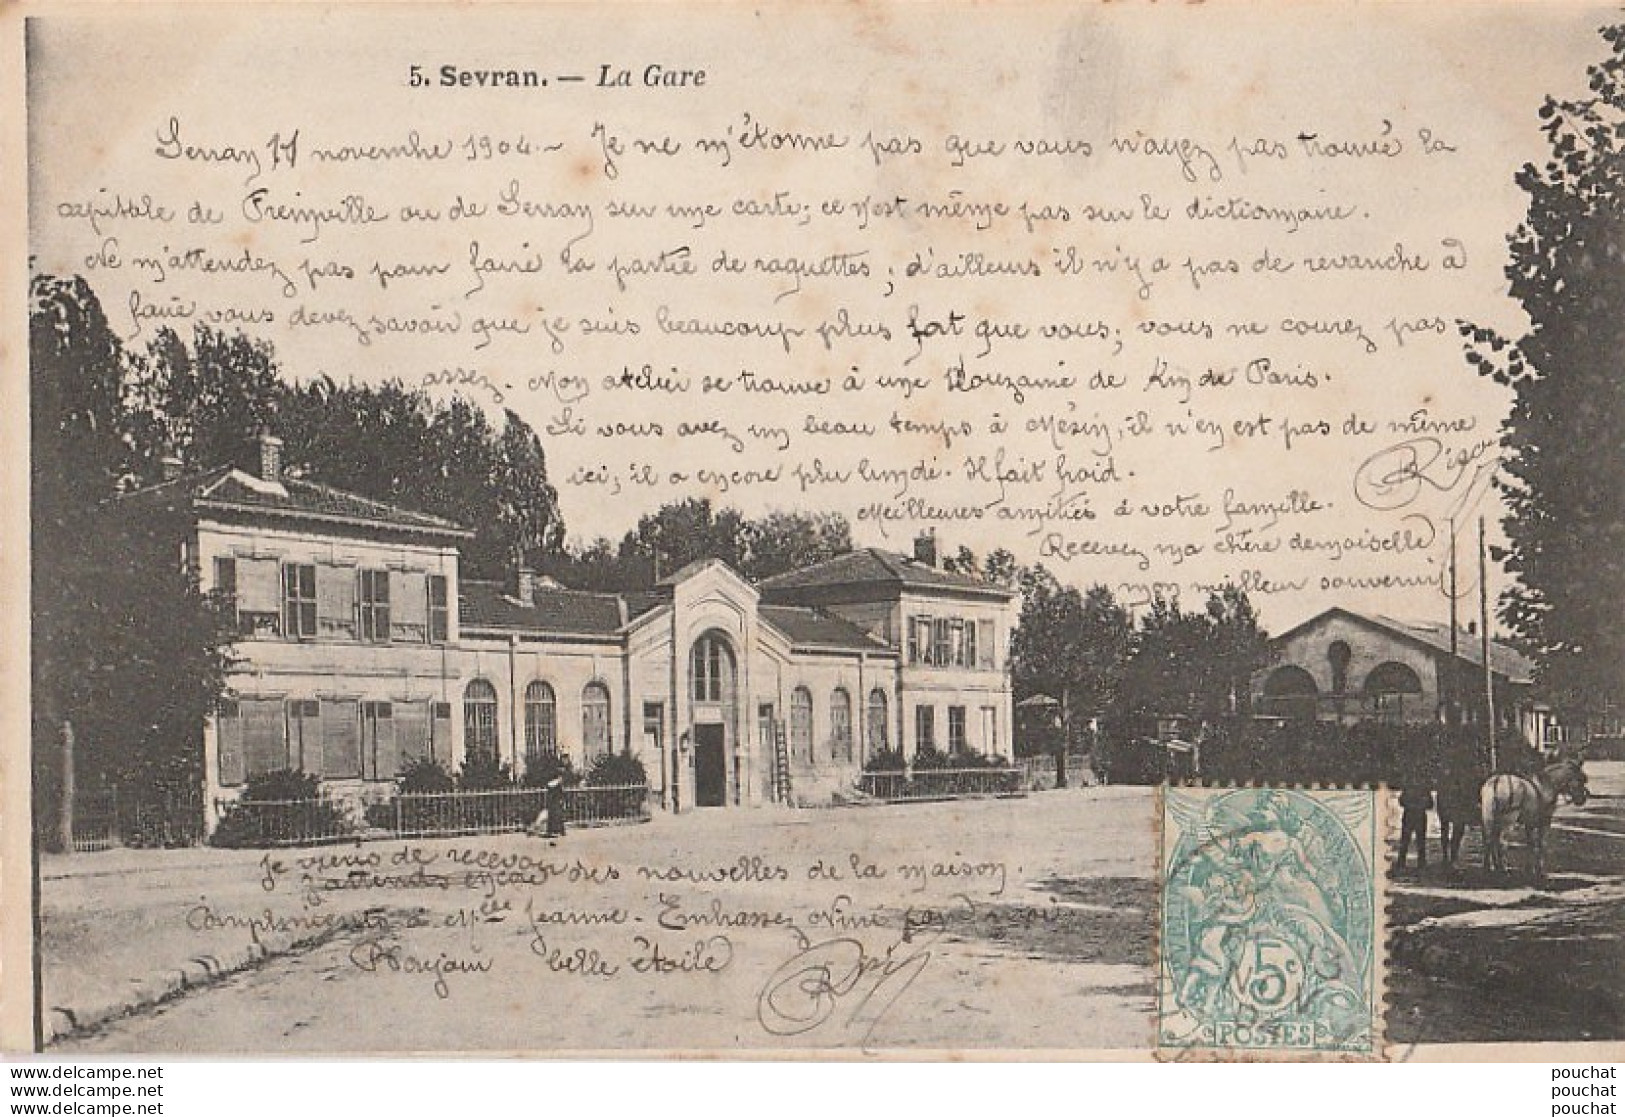 5. Sevran. — La Gare
Sevran 11 novembre 1904 - Je ne m'étonne pas que vous n'ayez pas trouvé la
capitale de Freinville ou de Sevran sur une carte; ce n'est même pas sur le dictionnaire.
Ne m'attendez pas pour faire la partie de raquettes; d'ailleurs il n'y a pas de revanche à
faire, vous devez savoir que je suis beaucoup plus fort que vous; vous ne courez pas
assez. Mon atelier se trouve à une douzaine de Km de Paris.
Si vous avez un beau temps à Mézin, il n'en est pas de même
ici; il a encore plu lundi. Il fait froid.
Meilleures amitiés à votre famille.
Recevez ma chère demoiselle
mon meilleur souvenir
Je viens de recevoir des nouvelles de la maison.
J'attendais encore
Compliments à Mlle Jeanne. Embrassez Niní pour moi
Bonjour belle étoile
5c
POSTES
www.delcampe.net
www.delcampe.net
www.delcampe.net
pouchat
pouchat
pouchat